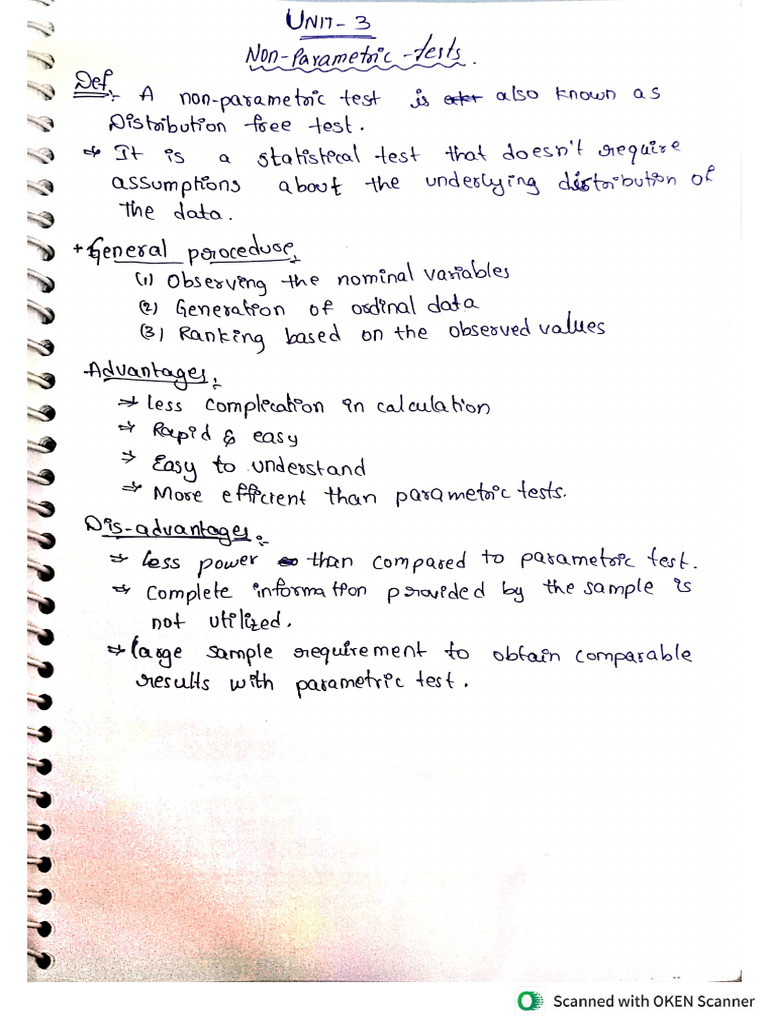 UNIT-3
Non-Parametric-tests.
Def:- A non-parametric test is also known as
Distribution free test.
→ It is a statistical test that doesn't require
assumptions about the underlying distribution of
the data.
+ General procedure:-
(1) Observing the nominal variables
(2) Generation of ordinal data
(3) Ranking based on the observed values
Advantages:-
→ less complication in calculation
→ Rapid & easy
→ Easy to understand
→ More efficient than parametric tests.
Dis-advantages:-
→ less power than compared to parametric test.
→ Complete information provided by the sample is
not utilized.
→ large sample requirement to obtain comparable
results with parametric test.
Scanned with OKEN Scanner